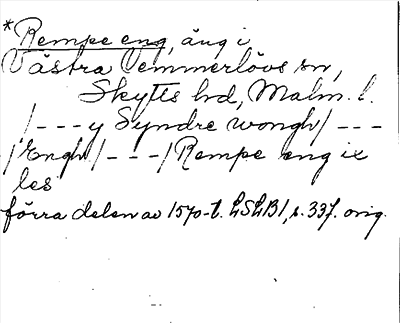 *Rempe eng, äng i
Västra Vemmerlövs sn,
Skytts hd, Malm. l.
/---y Syndre wongh/---
/Engh/---/Rempe eng ix
les
förra delen av 1570-t. LSLB1, s. 337. orig.